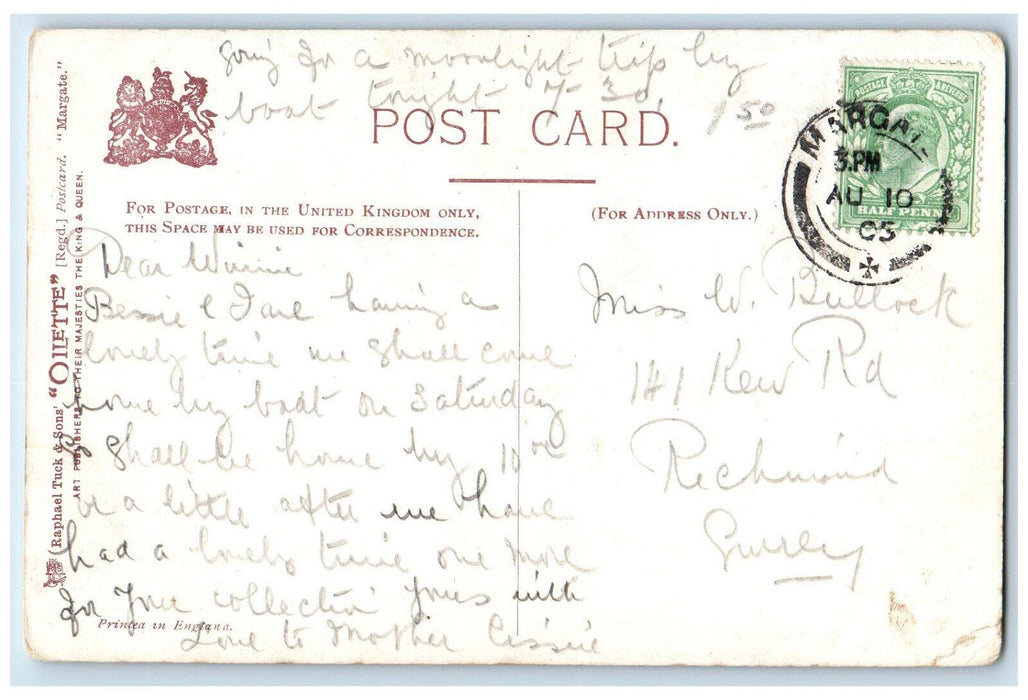 going for a moonlight trip by
boat tonight 7-30.
1 50
POST CARD.
FOR POSTAGE, IN THE UNITED KINGDOM ONLY,
THIS SPACE MAY BE USED FOR CORRESPONDENCE.
(FOR ADDRESS ONLY.)
POSTAGE & REVENUE
HALF PENNY
MARGATE
3.PM
AU 10
05
Raphael Tuck & Sons' "OILETTE" [Regd.] Postcard. "Margate."
ART PUBLISHERS TO THEIR MAJESTIES THE KING & QUEEN.
Dear Winnie
Bessie & I are having a
lovely time we shall come
home by boat on Saturday
& shall be home by 10
or a little after we have
had a lovely time one more
for your collection yours with
Love to Mother Cissie
Printed in England.
Miss W. Bullock
141 Kew Rd
Richmond
Surrey